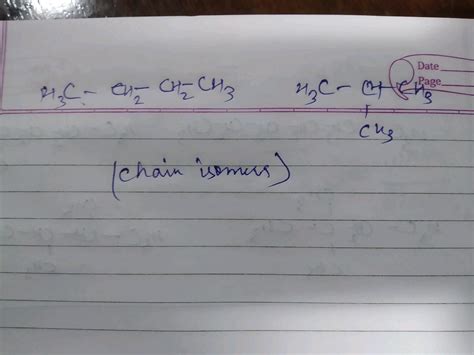 Date
Page
H3C - CH2 - CH2CH3 H3C - CH - CH3
CH3
(chain isomers)